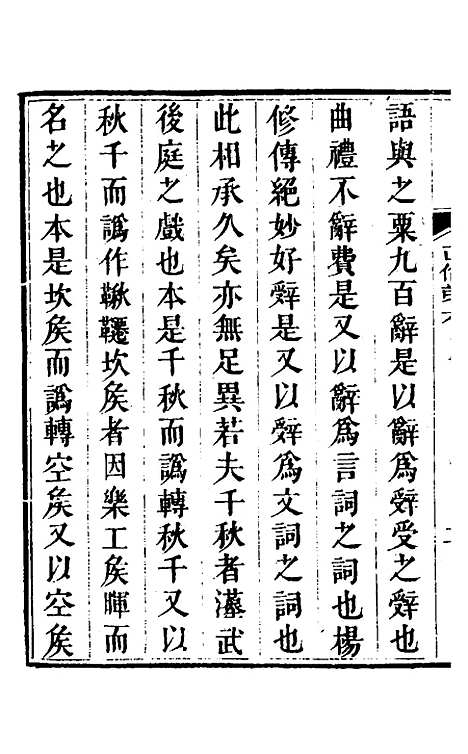 語與之粟九百辭是以辭爲辤受之辤也
曲禮不辭費是又以辭爲言詞之詞也楊
修傳絕妙好辤是又以辤爲文詞之詞也
此相承久矣亦無足異若夫千秋者漢武
後庭之戲也本是千秋而譌轉秋千又以
秋千而譌作鞦韆坎矦者因樂工矦暉而
名之也本是坎矦而譌轉空矦又以空矦